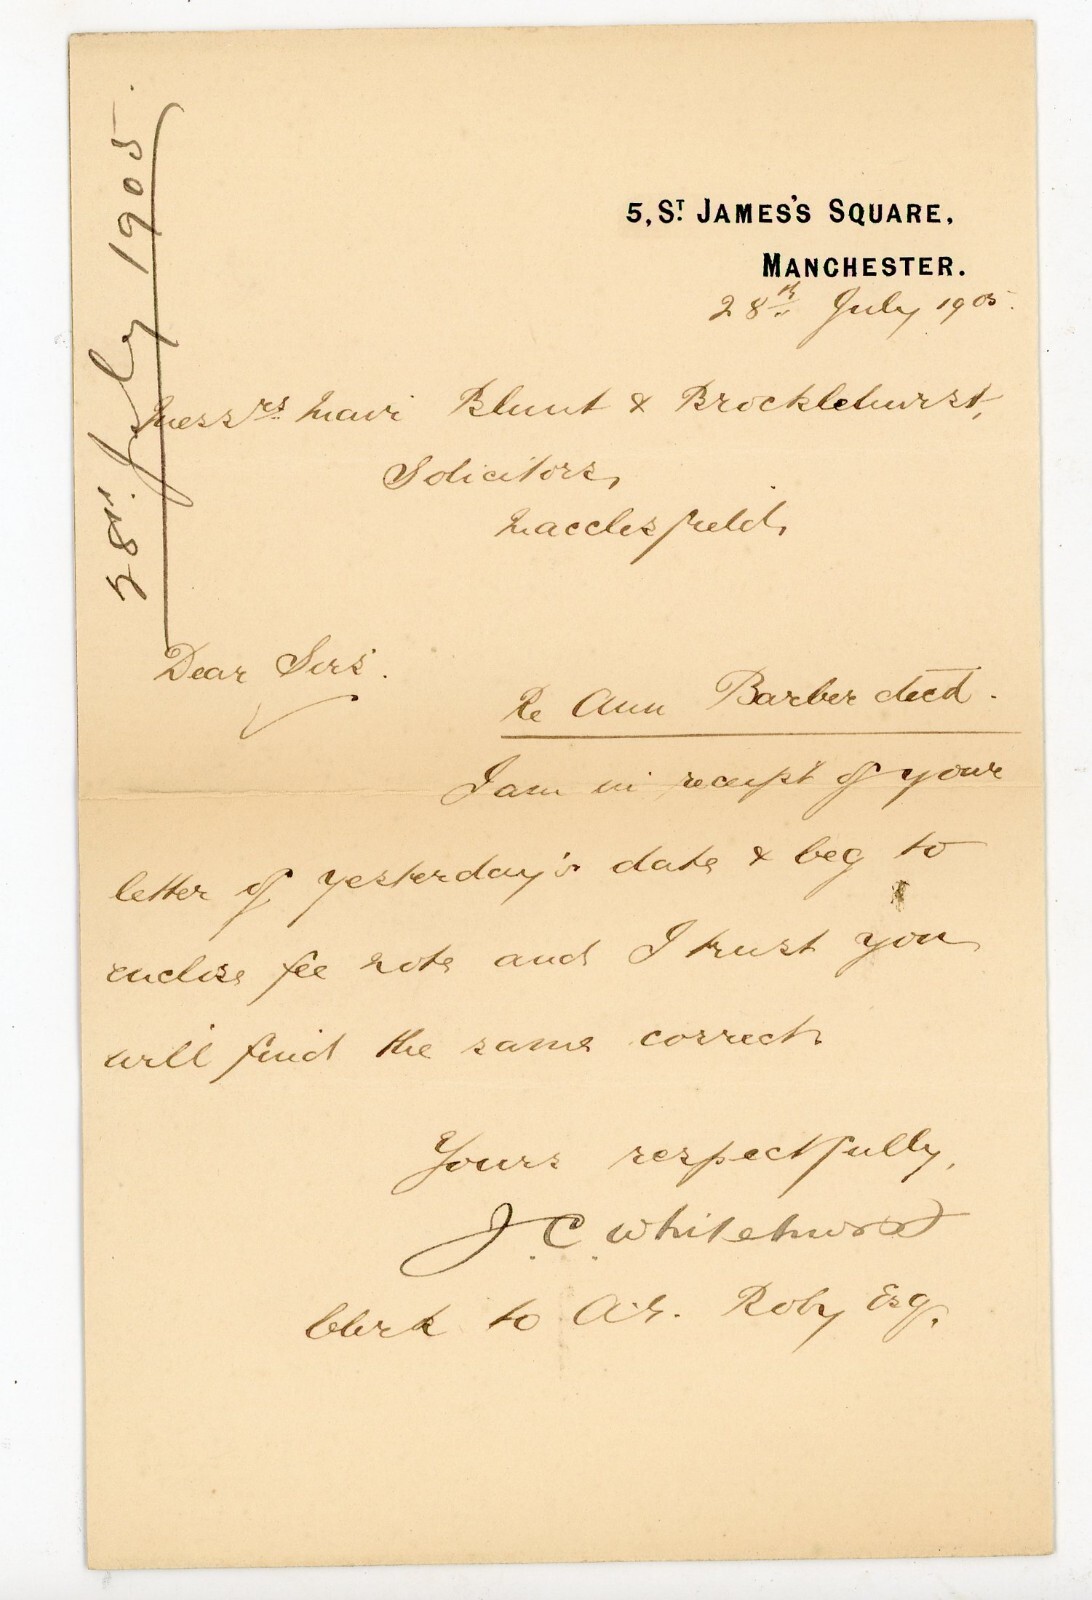 28th. July 1905.
5, St. JAMES'S SQUARE,
MANCHESTER.
28th July 1905.
Messrs. Mair Blunt & Brocklehurst,
Solicitors,
Macclesfield,
Dear Sirs.
Re Ann Barber decd.
I am in receipt of your
letter of yesterday's date & beg to
enclose fee note and I trust you
will find the same correct.
Yours respectfully,
J. C. Whitehurst
Clerk to A. G. Roby Esq.